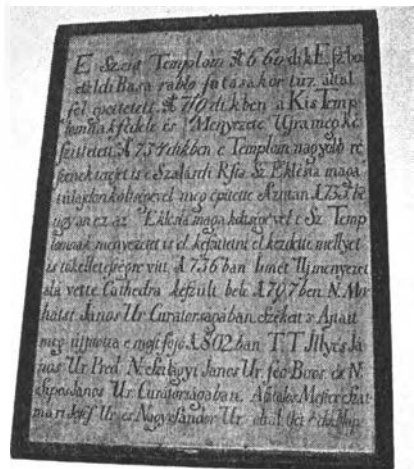 E Szent Templom A 660 dik Eszben
el égette futásakor tüz által
fel épettetett. A 710 dikben a Kis Temp
lomnak fedele és Menyezete Ujra meg ké
szittetett, A 734 dikben e Templom nagyobb ré
szenek tetejét is e Szalárdi Rfta Sz Eklésia maga
tulajdon költségével meg épitette Azután A 753 ba
ugyan ez az Eklésia maga költségével e Sz Temp
lomnak menyezetét is el készitetni el kezdette mellyet
is tökelletességre vitt, A 736 ban Ismét Uj menyezet
alá vette Cathedra készült bele A 797 ben N.
János Ur Curatorságában Székeit s Ajtait
meg ujjitotta e molt fojó A 802 ban T T Illyés Já
nos Ur Pred. N. Szilágyi János Ur. feö Biros. és N.
Sipos János Ur Curatorságában. Asztalos Mester Szat
mári Jósef Ur és Nagy Sándor Ur által